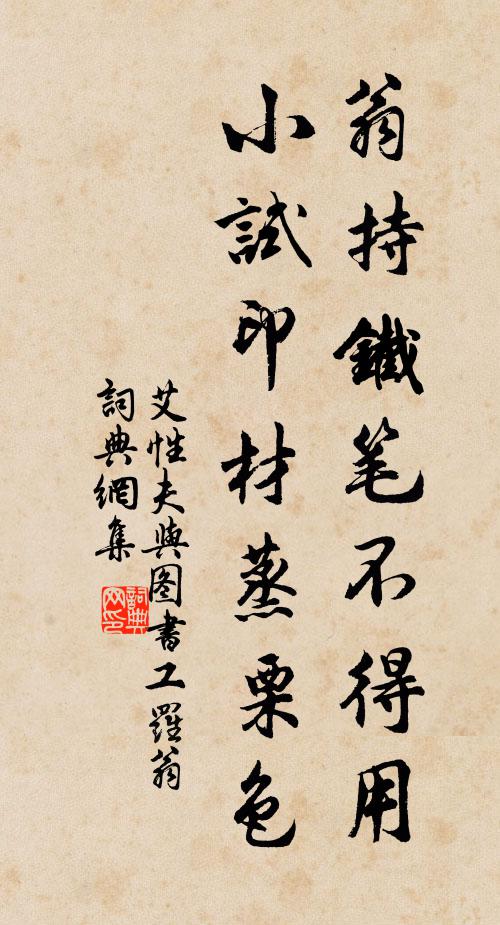 翁持鐵笔不得用
小試印材蒸栗色
艾性夫與图書工羅翁
詞典網集
詞典
网印